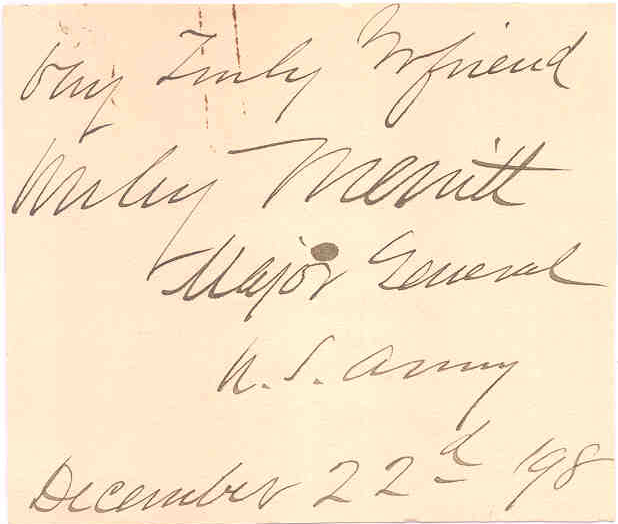 Very Truly Yr friend
Wesley Merritt
Major General
U.S. Army
December 22d 198